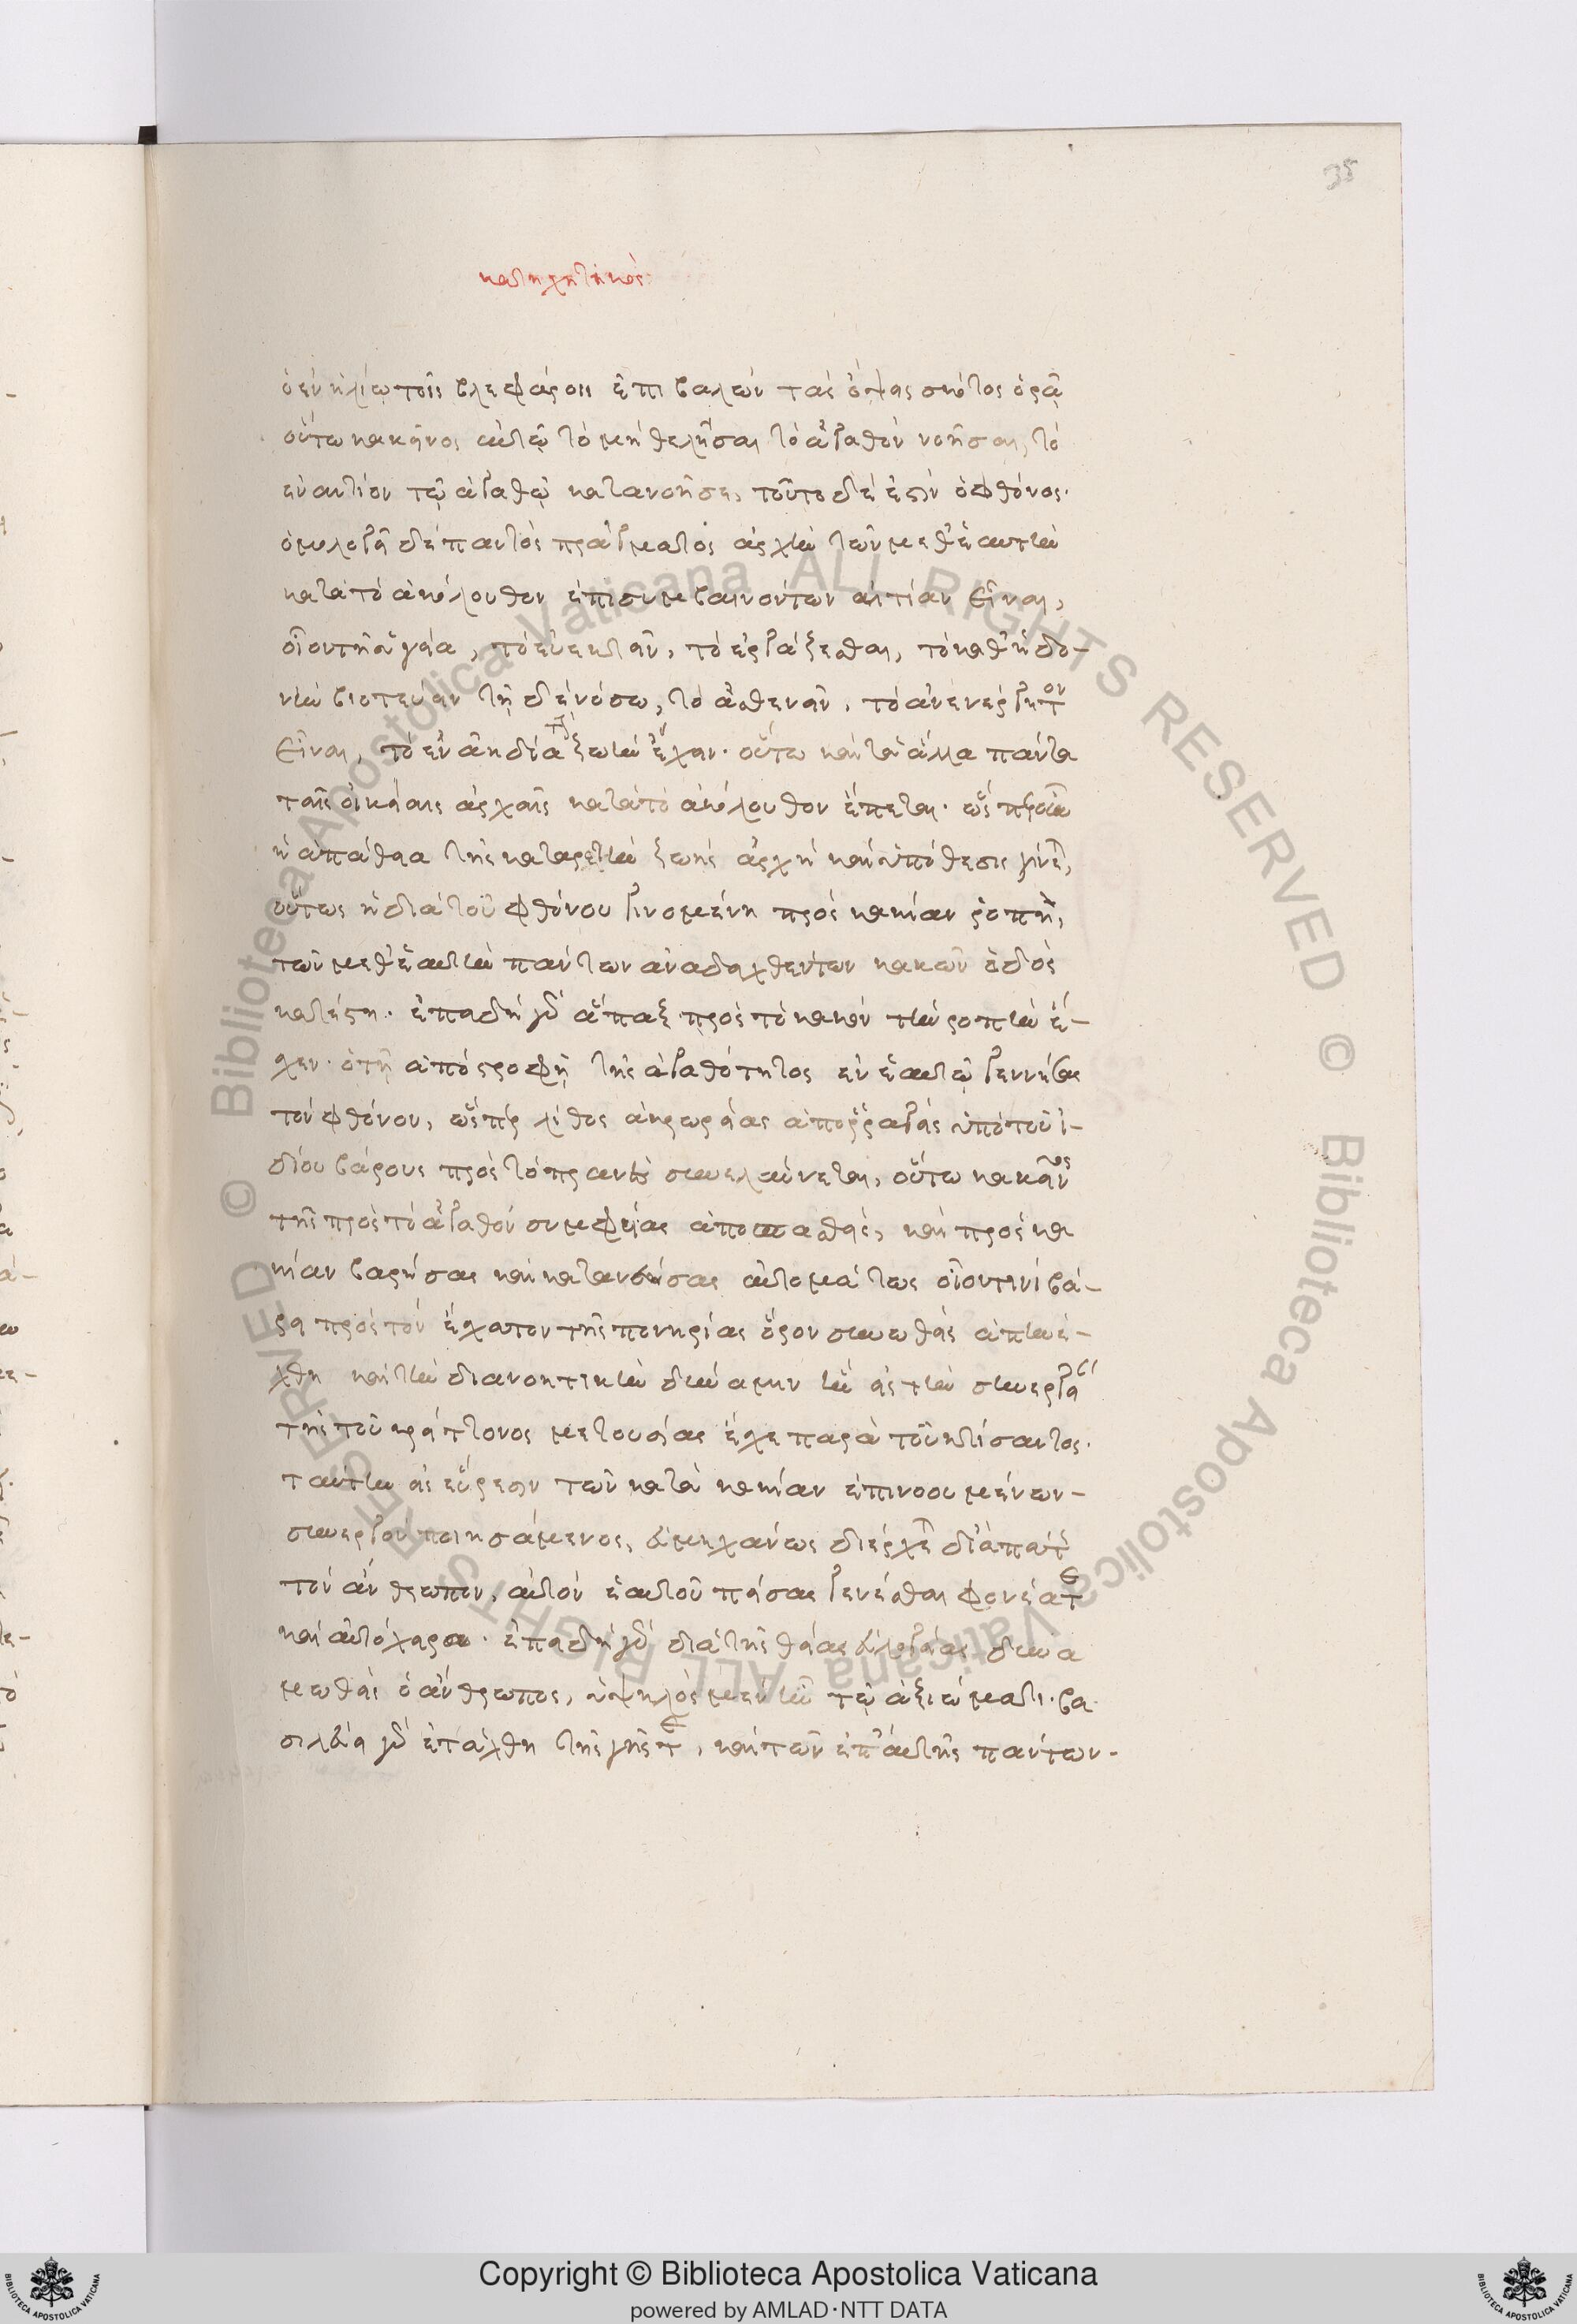 35
κατηχητικός
ὁ ἐν ἡλίῳ τοῖς βλεφάροις ἐπιβαλὼν τὰς ὄψας σκότος ὁρᾷ
οὕτω κἀκεῖνος αὐτῷ τὸ μὴ θελῆσαι τὸ ἀγαθὸν νοῆσαι, τὸ
ἐναντίον τῷ ἀγαθῷ κατανοῆσε, τοῦτο δέ ἐστιν ὁ φθόνος.
ὁμολογεῖ δὲ παντὸς πράγματος ἀρχὴν τῶν μεθ' ἑαυτὴν
κατὰ τὸ ἀκόλουθον ἐπισυμβαινόντων αἰτίαν εἶναι,
οἷον τῇ ὑγεία, τὸ εὐεκτεῖν, τὸ ἐργάζεσθαι, τὸ καθ' ἡδο-
νὴν βιοτεύειν τῇ δὲ νόσω, τὸ ἀσθενεῖν, τὸ ἀνενέργητον
εἶναι, τὸ ἐν ἀηδία τὴν ζωὴν ἔχειν. οὕτω καὶ τὰ ἄλλα πάντα
ταῖς οἰκείαις ἀρχαῖς κατὰ τὸ ἀκόλουθον ἕπεται. ὥσπερ οὖν
ἡ ἀπάθεια τῆς κατ' ἀρετὴν ζωῆς ἀρχὴ καὶ ὑπόθεσις γίνεται,
οὕτως ἡ διὰ τοῦ φθόνου γινομένη πρὸς κακίαν ῥοπὴ,
τῶν μεθ' ἑαυτὴν πάντων ἀναδειχθέντων κακῶν ὁδὸς
κατέστη. ἐπειδὴ γὰρ ἅπαξ πρὸς τὸ κακὸν τὴν ῥοπὴν ἔ-
χεν. ὁ τῇ ἀποστροφῇ τῆς ἀγαθότητος ἐν ἑαυτῷ γεννήσας
τὸν φθόνον, ὥσπερ λίθος ἀκρωρείας ἀπορραγεὶς ὑπὸ τοῦ ἰ-
δίου βάρους πρὸς τὸ πρανὲς συνελαύνεται, οὕτω κἀκεῖνος
τῆς πρὸς τὸ ἀγαθὸν συμφυΐας ἀποσπασθεὶς, καὶ πρὸς κα
κίαν βαρήσας καὶ αὐτομάτως οἷον τινὶ βά-
ρει πρὸς τὸν ἔσχατον τῆς πονηρίας ὅρον συνωσθεὶς ἀπηνέ-
χθη καὶ τὴν διανοητικὴν δύναμιν ἣν εἰς τὴν συνεργίαν
τῆς τοῦ κρείττονος μετουσίας ἔσχε παρὰ τοῦ κτίσαντος.
ταύτην εἰς εὕρεσιν τῶν κατὰ κακίαν ἐπινοουμένων-
συνεργὸν ποιησάμενος, εὐμηχάνως διέρχεται δι' ἀπάτης
τὸν ἄνθρωπον, αὐτὸν ἑαυτοῦ πείσας γενέσθαι φονέα τε
καὶ αὐτόχειρα. ἐπειδὴ γὰρ διὰ τῆς θείας εὐλογίας δυνα
μωθεὶς ὁ ἄνθρωπος, ὑψηλὸς μὲν ἦν τῷ ἀξιώματι. βα-
σιλεύειν γὰρ ἐτάχθη τῆς γῆς τε, καὶ τῶν ἐπ' αὐτῆς πάντων.
Copyright © Biblioteca Apostolica Vaticana
powered by AMLAD·NTT DATA